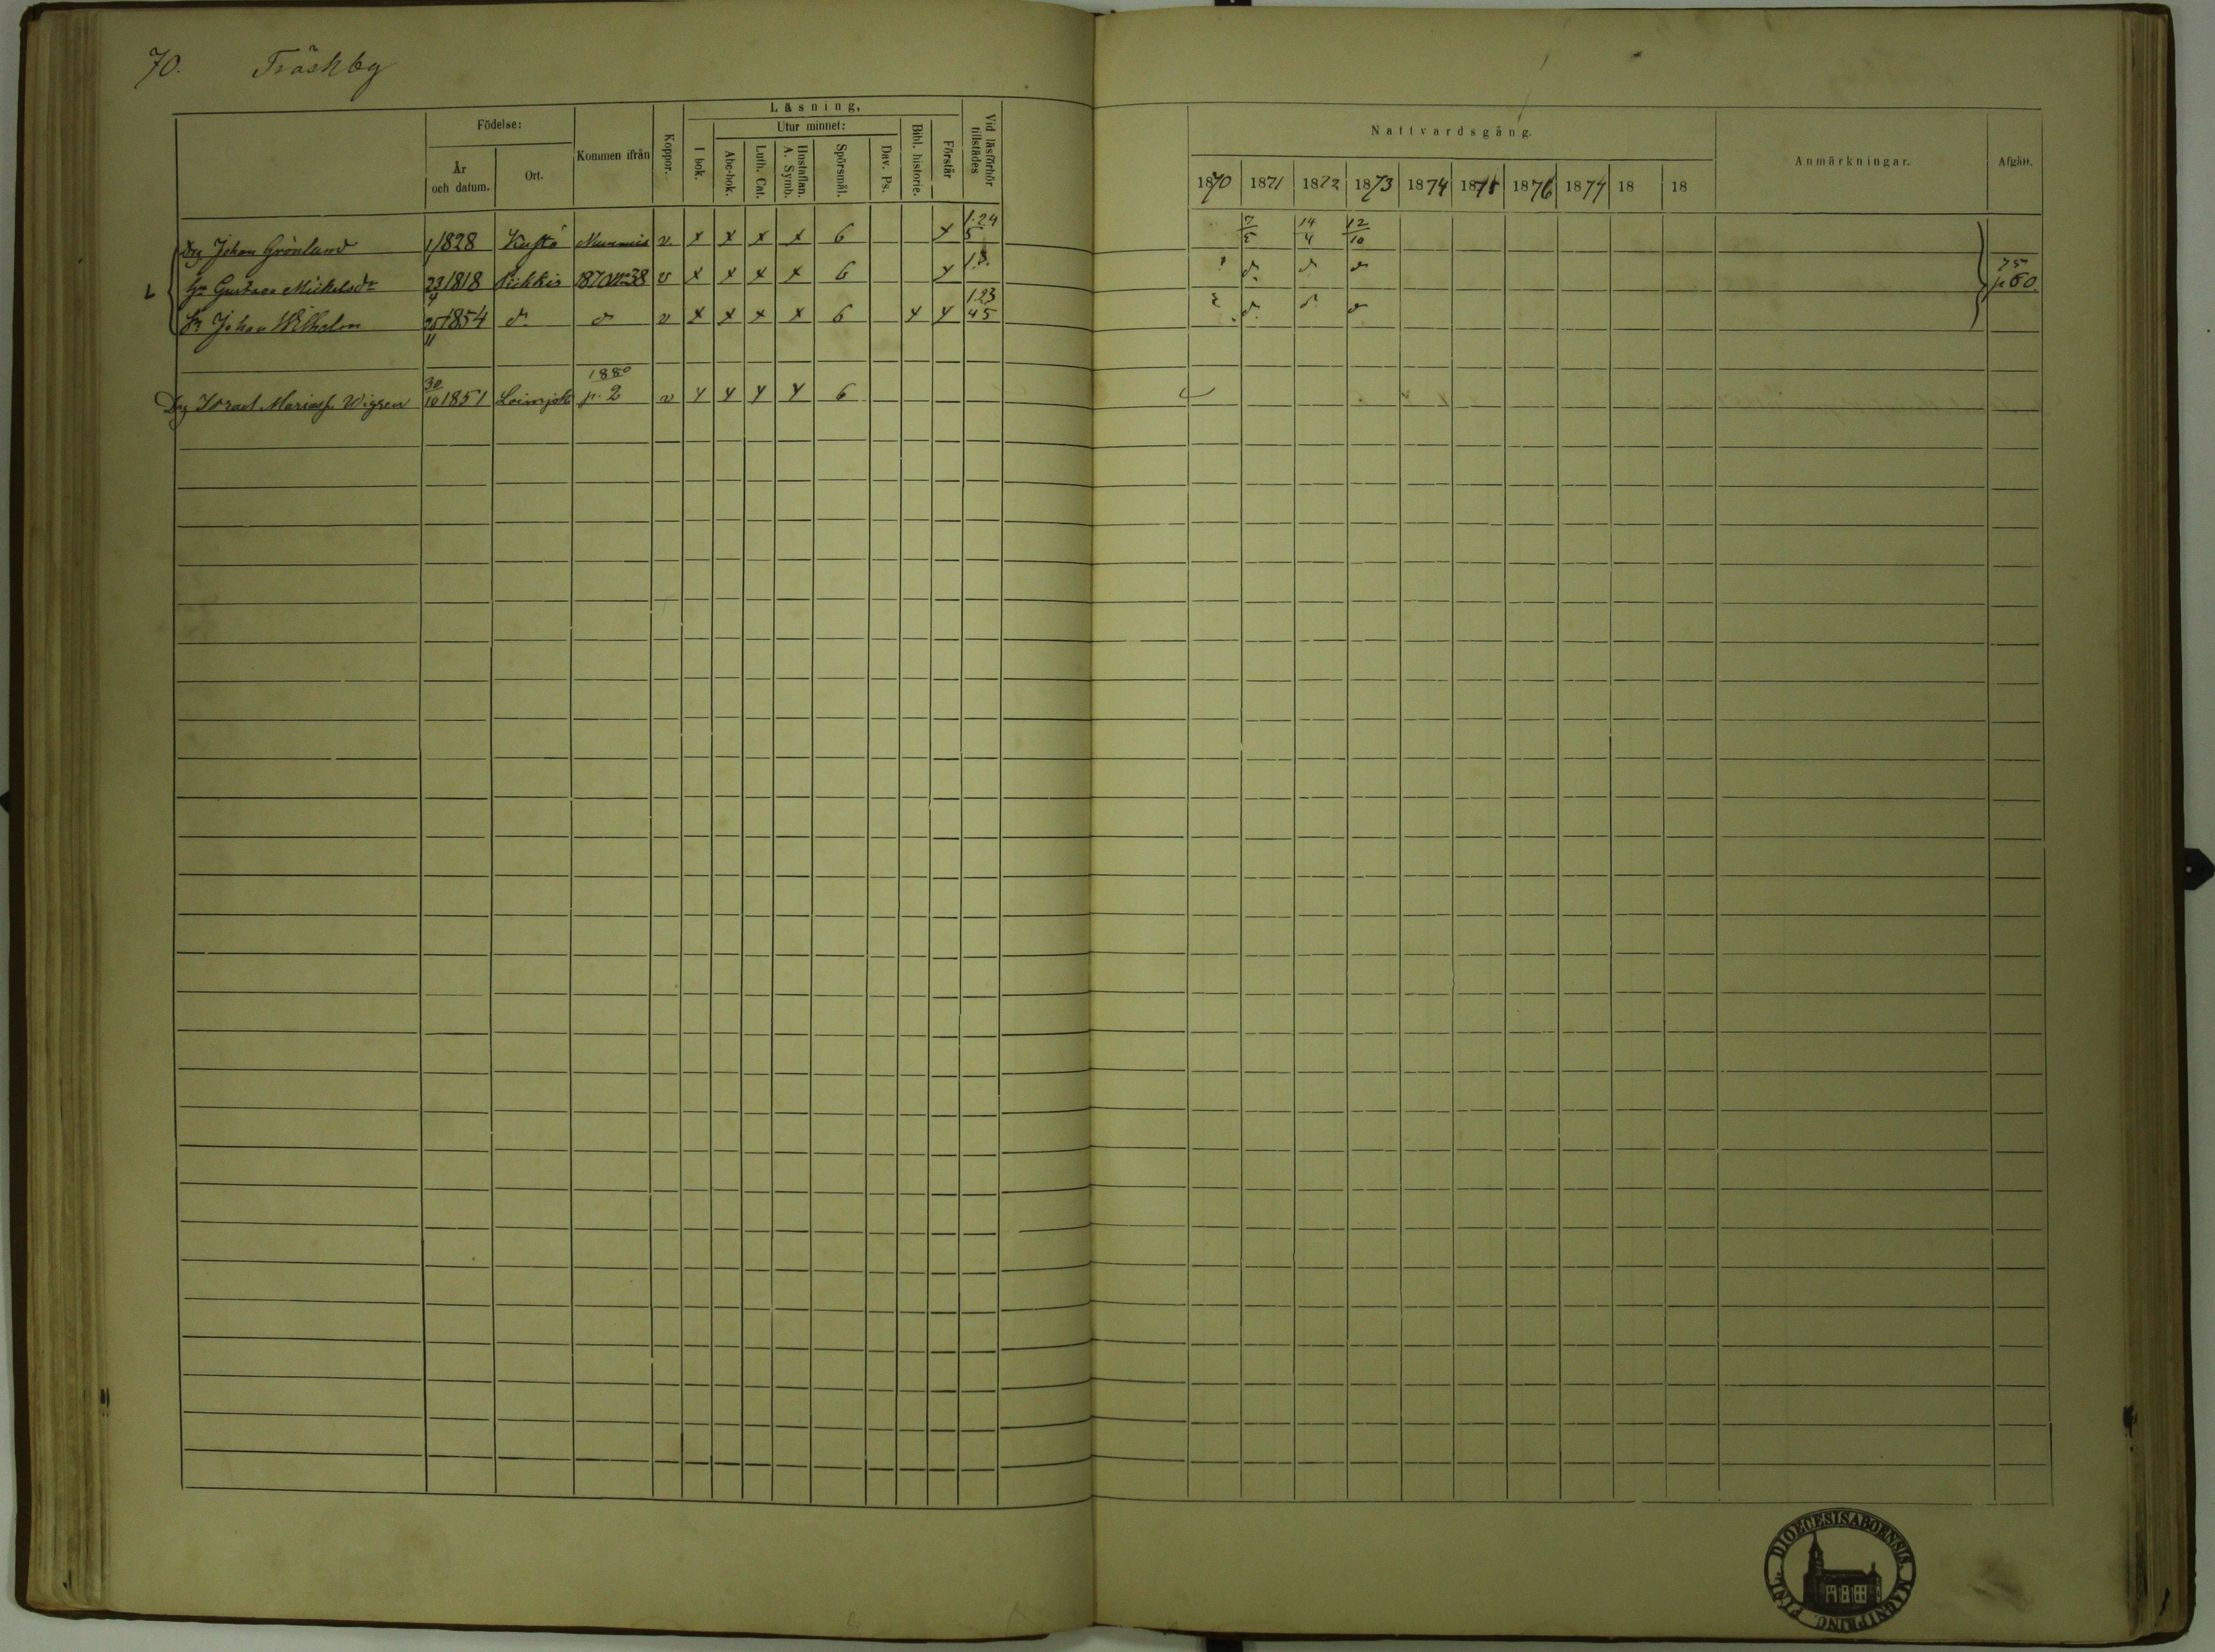 70. Träskby
Födelse:
År och datum.
Ort.
Kommen ifrån
Koppor.
Läsning,
I bok.
Utur minnet:
Abc-bok.
Luth. Cat.
Hustaflan. A. Symb.
Spörsmål.
Dav. Ps.
Bibl. historie.
Förstår
Vid läsförhör tillstädes
Nattvardsgång.
1870 1871 1872 1873 1874 1875 1876 1877 18 18
Anmärkningar.
Afgått.
Drg Johan Grönlund 1/828 Kustö Nummis v x x x x 6 x 1.24 5 7/5 14/4 12/10
Hu Gustava Mickelsdr 23/4 1818 Pichkis 1870 v x x x x 6 x 1.3. d. d. d 75 p 60.
Sn Johan Wilhelm 25/11 1854 d. d v x x x x 6 x x 1.23 45 d. d. d
Drg Israel Wigren 30/10 1851 Loimjoki 1880 p. 2 v x x x x 6
FINL. DIOECESIS ABOENSIS, MAGNI PRINC.